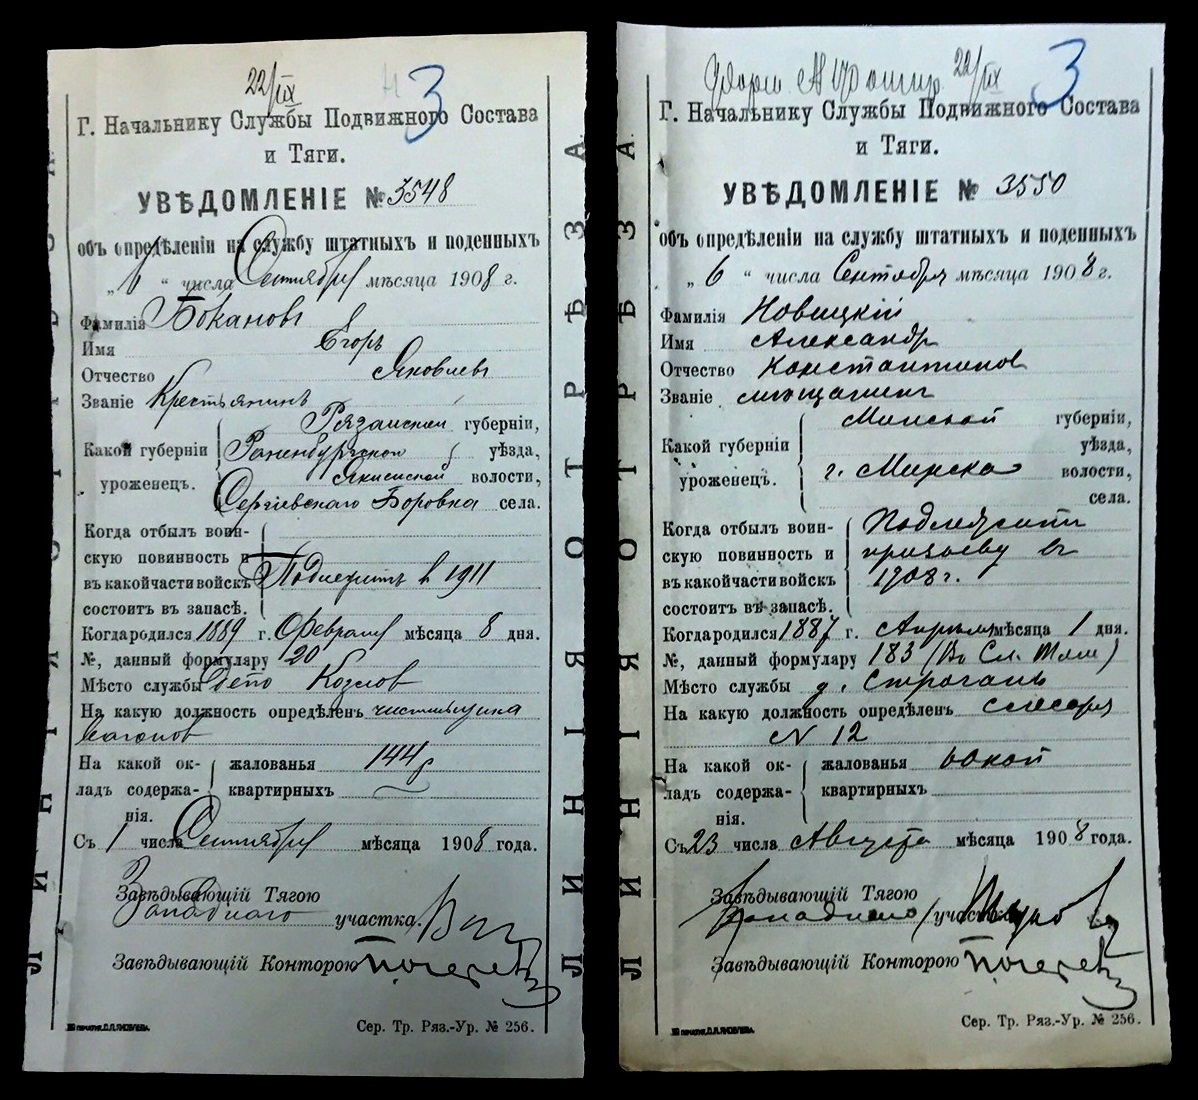 22/IX
3
Г. Начальнику Службы Подвижного Состава
и Тяги.
УВѢДОМЛЕНІЕ № 3548
объ опредѣленіи на службу штатныхъ и поденныхъ
„6“ числа Сентября мѣсяца 1908 г.
Фамилія Бокановъ
Имя Егоръ
Отчество Яковлевъ
Званіе Крестьянинъ
Рязанской губерніи,
Какой губерніи Раненбургской уѣзда,
уроженецъ. волости,
Сергіевскаго Боровка села.
Когда отбылъ воин-
скую повинность и
въ какой части войскъ Подлежитъ в 1911
состоитъ въ запасѣ.
Когда родился 1889 г. Февраля мѣсяца 8 дня.
№, данный формуляру 120
Мѣсто службы депо Козлов
На какую должность опредѣленъ чистильщика
вагонов
На какой ок- жалованья 144р
ладъ содержа- квартирныхъ
нія.
Съ 1 числа Сентября мѣсяца 1908 года.
Завѣдывающій Тягою
Западнаго участка
Завѣдывающій Конторою
Сер. Тр. Ряз.-Ур. № 256.
ЛИНІЯ ОТРѢЗА.
22/IX
3
Г. Начальнику Службы Подвижного Состава
и Тяги.
УВѢДОМЛЕНІЕ № 3550
объ опредѣленіи на службу штатныхъ и поденныхъ
„6“ числа Сентября мѣсяца 1908 г.
Фамилія Новицкій
Имя Александр
Отчество Константинов
Званіе мещанин
Минской губерніи,
Какой губерніи уѣзда,
уроженецъ. г. Минска волости,
села.
Когда отбылъ воин- Подлежит
скую повинность и призыву въ
въ какой части войскъ 1908 г.
состоитъ въ запасѣ.
Когда родился 1887 г. Апрѣля мѣсяца 1 дня.
№, данный формуляру 183 (Въ Сл. Тяги)
Мѣсто службы д. Строгань
На какую должность опредѣленъ слесаря
№ 12
На какой ок- жалованья
ладъ содержа- квартирныхъ
нія.
Съ 23 числа Августа мѣсяца 1908 года.
Завѣдывающій Тягою
Западнаго участка
Завѣдывающій Конторою
Сер. Тр. Ряз.-Ур. № 256.
ЛИНІЯ ОТРѢЗА.